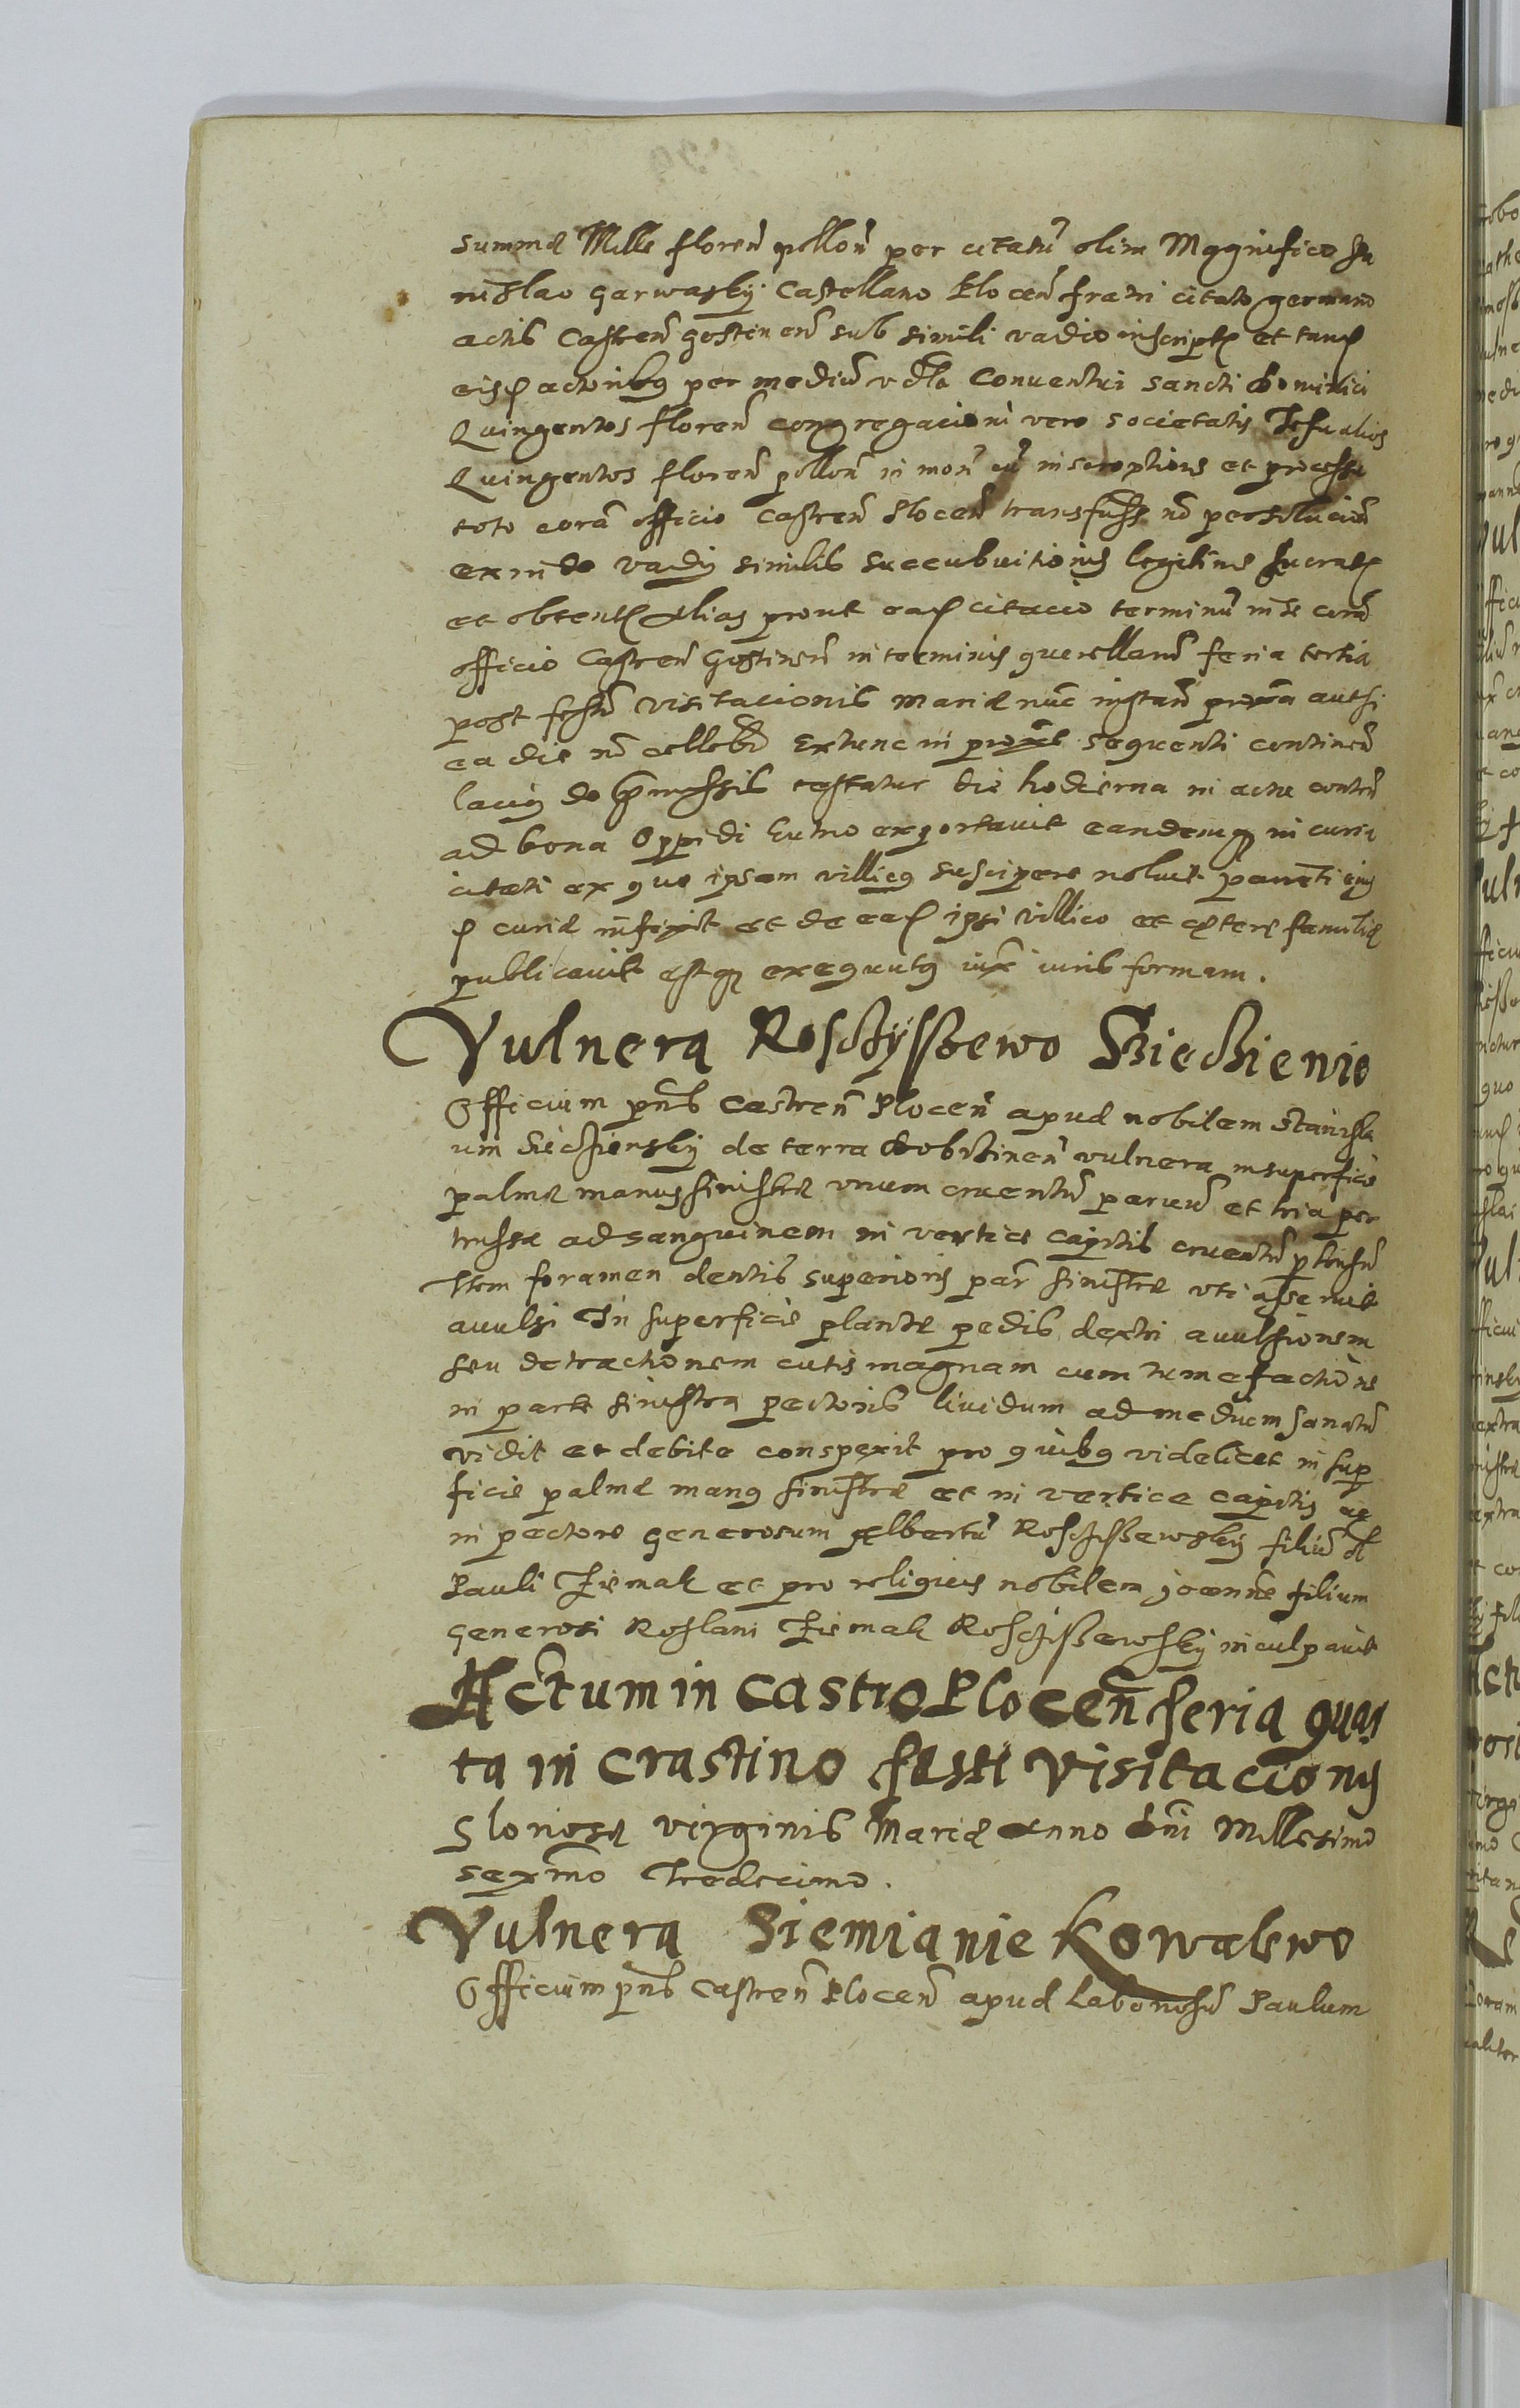 summæ Mille floren̄ pollon̄ per citatū olim Magnifico Sta
nislao Garwasky Castellano Plocen̄ fratri citato germano
actis Castren̄ Gostinen̄ sub simili vadio inscriptꝭ et tanqꝫ
eisdꝫ actoribꝰ per mediū vdla Conventui sancti Dominici
Quingentos floren̄ congregacioni vero societatis Jesu alios
Quingentos floren̄ pollon̄ in mon̄ cū inscriptione et processu
toto corā officio Castren̄ Plocen̄ transfusꝭ nō persolucion̄
exinde vadij similis succubuitionis legitime lucratꝭ
et obtentꝭ Alias prout eadꝫ citacio terminū in se corā
officio Castren̄ Gostinen̄ in terminis querellarū feria tertia
post festū Visitacionis Mariæ nūc instan̄ proxīa aut si
ea die nō cellebr̄ Extunc in proxīe sequenti continen̄
lacius de p̄missis testatur die hodierna in actu conten̄
ad bona Oppidi Kutno exportavit eandemqꝫ in curia
citati ex quo ipsam villicꝰ suscipere noluit parieti eius
dꝫ curiæ infixit et de eadꝫ ipsi villico et cęterę familię
publicavit estqꝫ exequutꝰ iux̄ iuris formam.
Vulnera Rosciyszewo Sieczienio
Officium pn̄s Castren̄ Plocen̄ apud nobilem Stanisla
um Siecziensky de terra Dobrzinen̄ vulnera in superficie
palmæ manus sinistræ unum cruentū parvū et tria per
trussa ad sanguinem in vertice capitis cruentū ptensū
Item foramen dentis superioris par̄ sinistræ uti asseruit
avulsi In superficie plantæ pedis dextri avulsionem
seu detractionem cutis magnam cum tumefactione
in parte sinistra pectoris lividum ad medium sanatū
vidit et debite conspexit pro quibꝰ videlicet in sup̱
ficie palmæ manꝰ sinistræ et in vertice capitis ac
in pectore generosum Albertū Rosciszewsky filiū ol
Pauli Ziemak et pro reliquis nobilem Joannē filium
generosi Roslani Ziemak Rosciszewsky inculpavit
Actum in Castro Plocen̄ feria quar
ta in Crastino festi Visitacionis
Gloriosæ virginis Mariæ Anno Dn̄i Millesimo
sexm̄o Tredecimo.
Vulnera Ziemianie Kowalewo
Officium pn̄s Castren̄ Plocen̄ apud Laboriosū Paulum